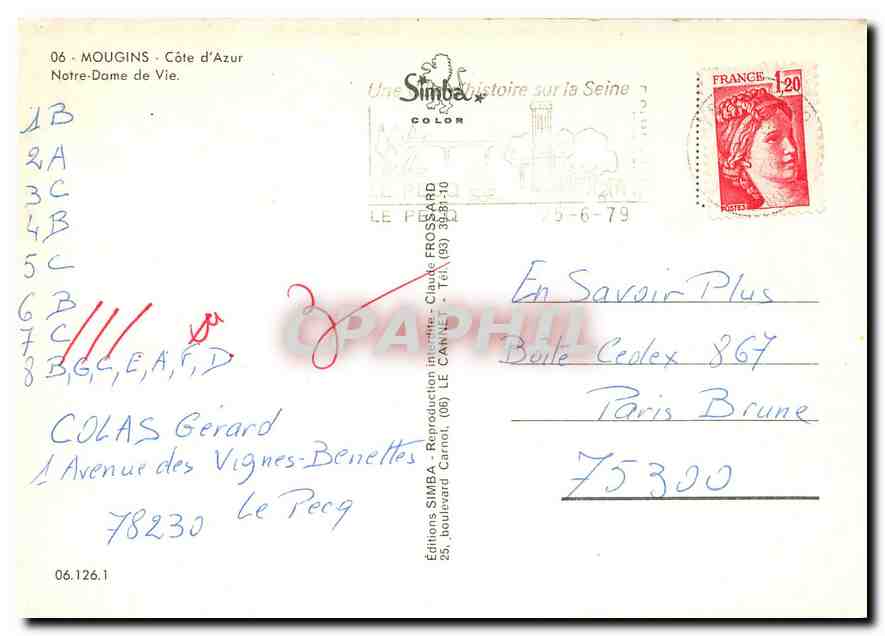 06 - MOUGINS - Côte d'Azur
Notre-Dame de Vie.
1 B
2 A
3 C
4 B
5 C
6 B
7 C
8 B, G, C, E, A, F, D.
COLAS Gérard
1 Avenue des Vignes-Benettes
78230 Le Pecq
06.126.1
Simba
COLOR
Une histoire sur la Seine
LE PECQ
LE PECQ 25-6-79
Éditions SIMBA - Reproduction interdite - Claude FROSSARD
25, boulevard Carnot, (06) LE CANNET - Tél. (93) 39-81-10
CPAPHIL
FRANCE 1,20
POSTES
En Savoir Plus
Boite Cedex 867
Paris Brune
75300